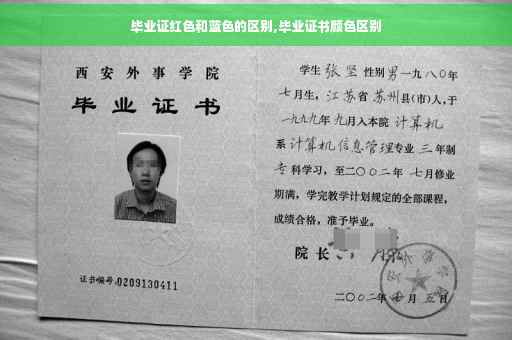 毕业证红色和蓝色的区别,毕业证书颜色区别
西安外事学院
毕业证书
证书编号:0209130411
学生 张坚 性别男一九八〇年
七月生，江苏省苏州县(市)人,于
一九九九年九月入本院 计算机
系计算机信息管理专业 三 年制
专科学习，至二〇〇二年 七月修业
期满，学完教学计划规定的全部课程，
成绩合格，准予毕业。
院长
二〇〇二年 月五日